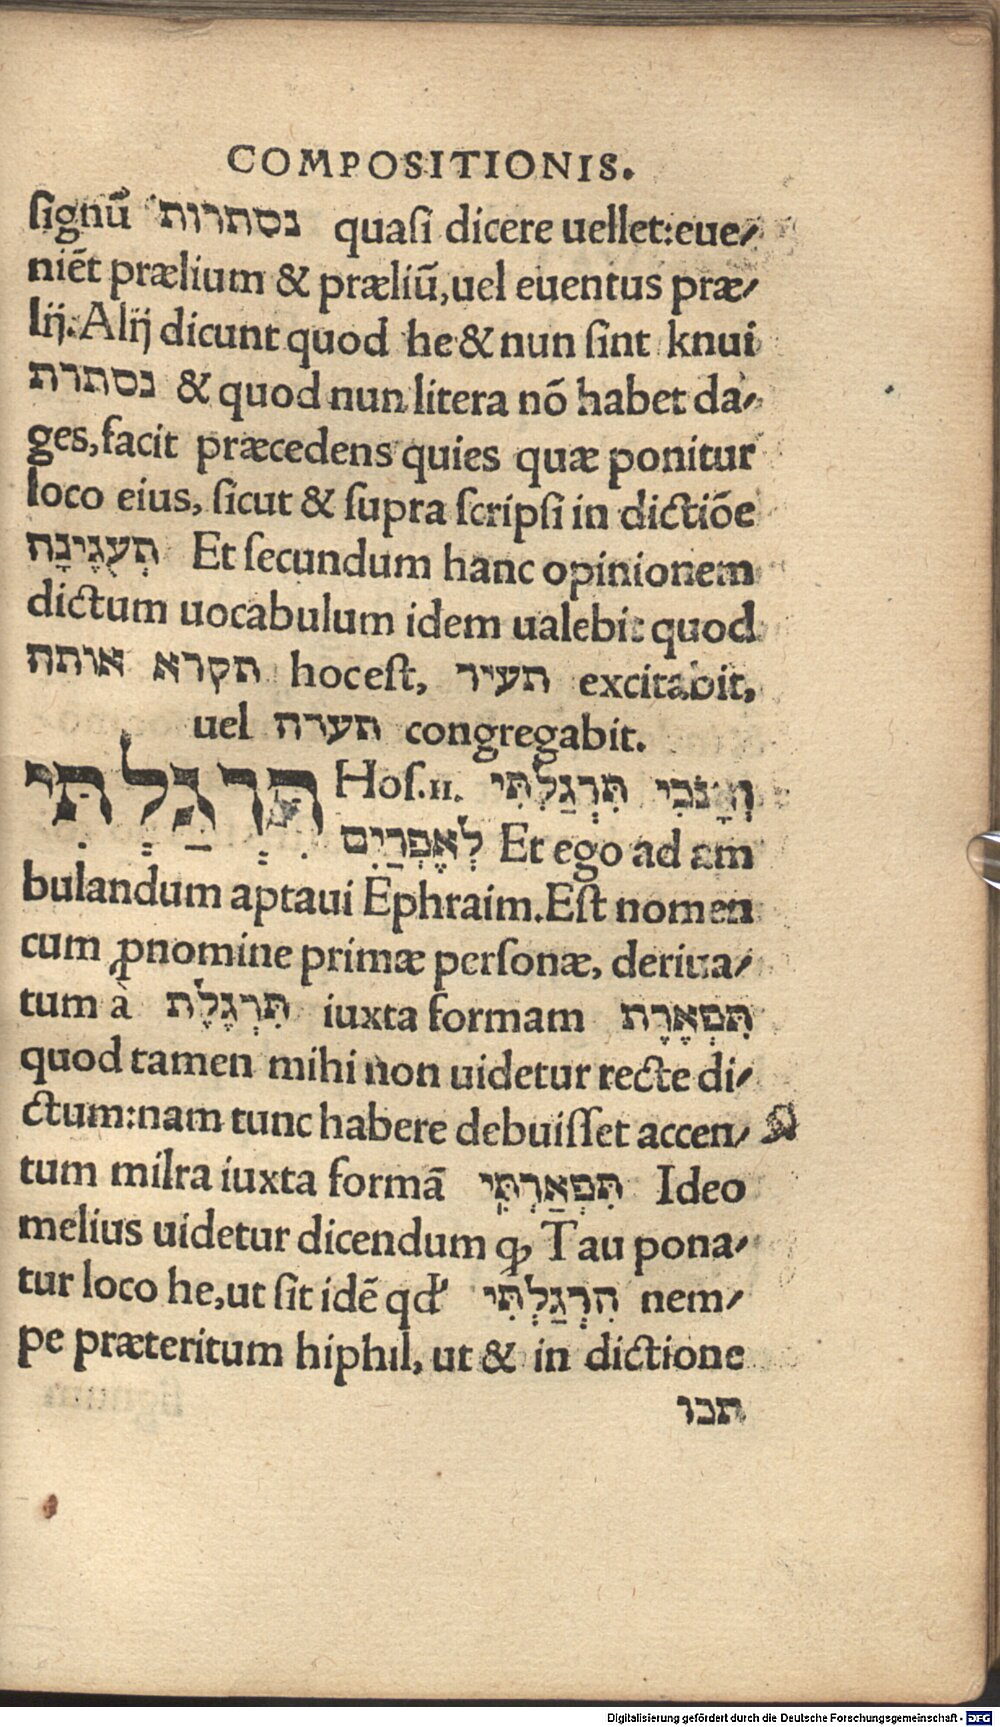 COMPOSITIONIS.
ſignū נסתרות quaſi dicere uellet:eue/
niēt prælium & præliū,uel euentus præ/
lij.Alij dicunt quod he & nun ſint knui
נסתרת & quod nun litera nō habet da/
ges,facit præcedens quies quæ ponitur
loco eius, ſicut & ſupra ſcripſi in dictiōe
תְּעֻגֶינָה Et ſecundum hanc opinionem
dictum uocabulum idem ualebit quod
תקרא אותה hoc eſt, תעיר excitabit,
uel תערה congregabit.
תִּרְגַּלְתִּי Hoſ.11. וְאָנֹכִי תִּרְגַּלְתִּי
לְאֶפְרַיִם Et ego ad am
bulandum aptaui Ephraim.Eſt nomen
cum ꝓnomine primæ perſonæ, deriua/
tum à תִּרְגֶּלֶת iuxta formam תִּפְאֶרֶת
quod tamen mihi non uidetur recte di/
ctum:nam tunc habere debuiſſet accen/
tum milra iuxta formā תִּפְאַרְתִּי Ideo
melius uidetur dicendum ꝙ Tau pona/
tur loco he,ut ſit idē qd' הִרְגַּלְתִּי nem/
pe præteritum hiphil, ut & in dictione
תבו
Digitalisierung gefördert durch die Deutsche Forschungsgemeinschaft - DFG